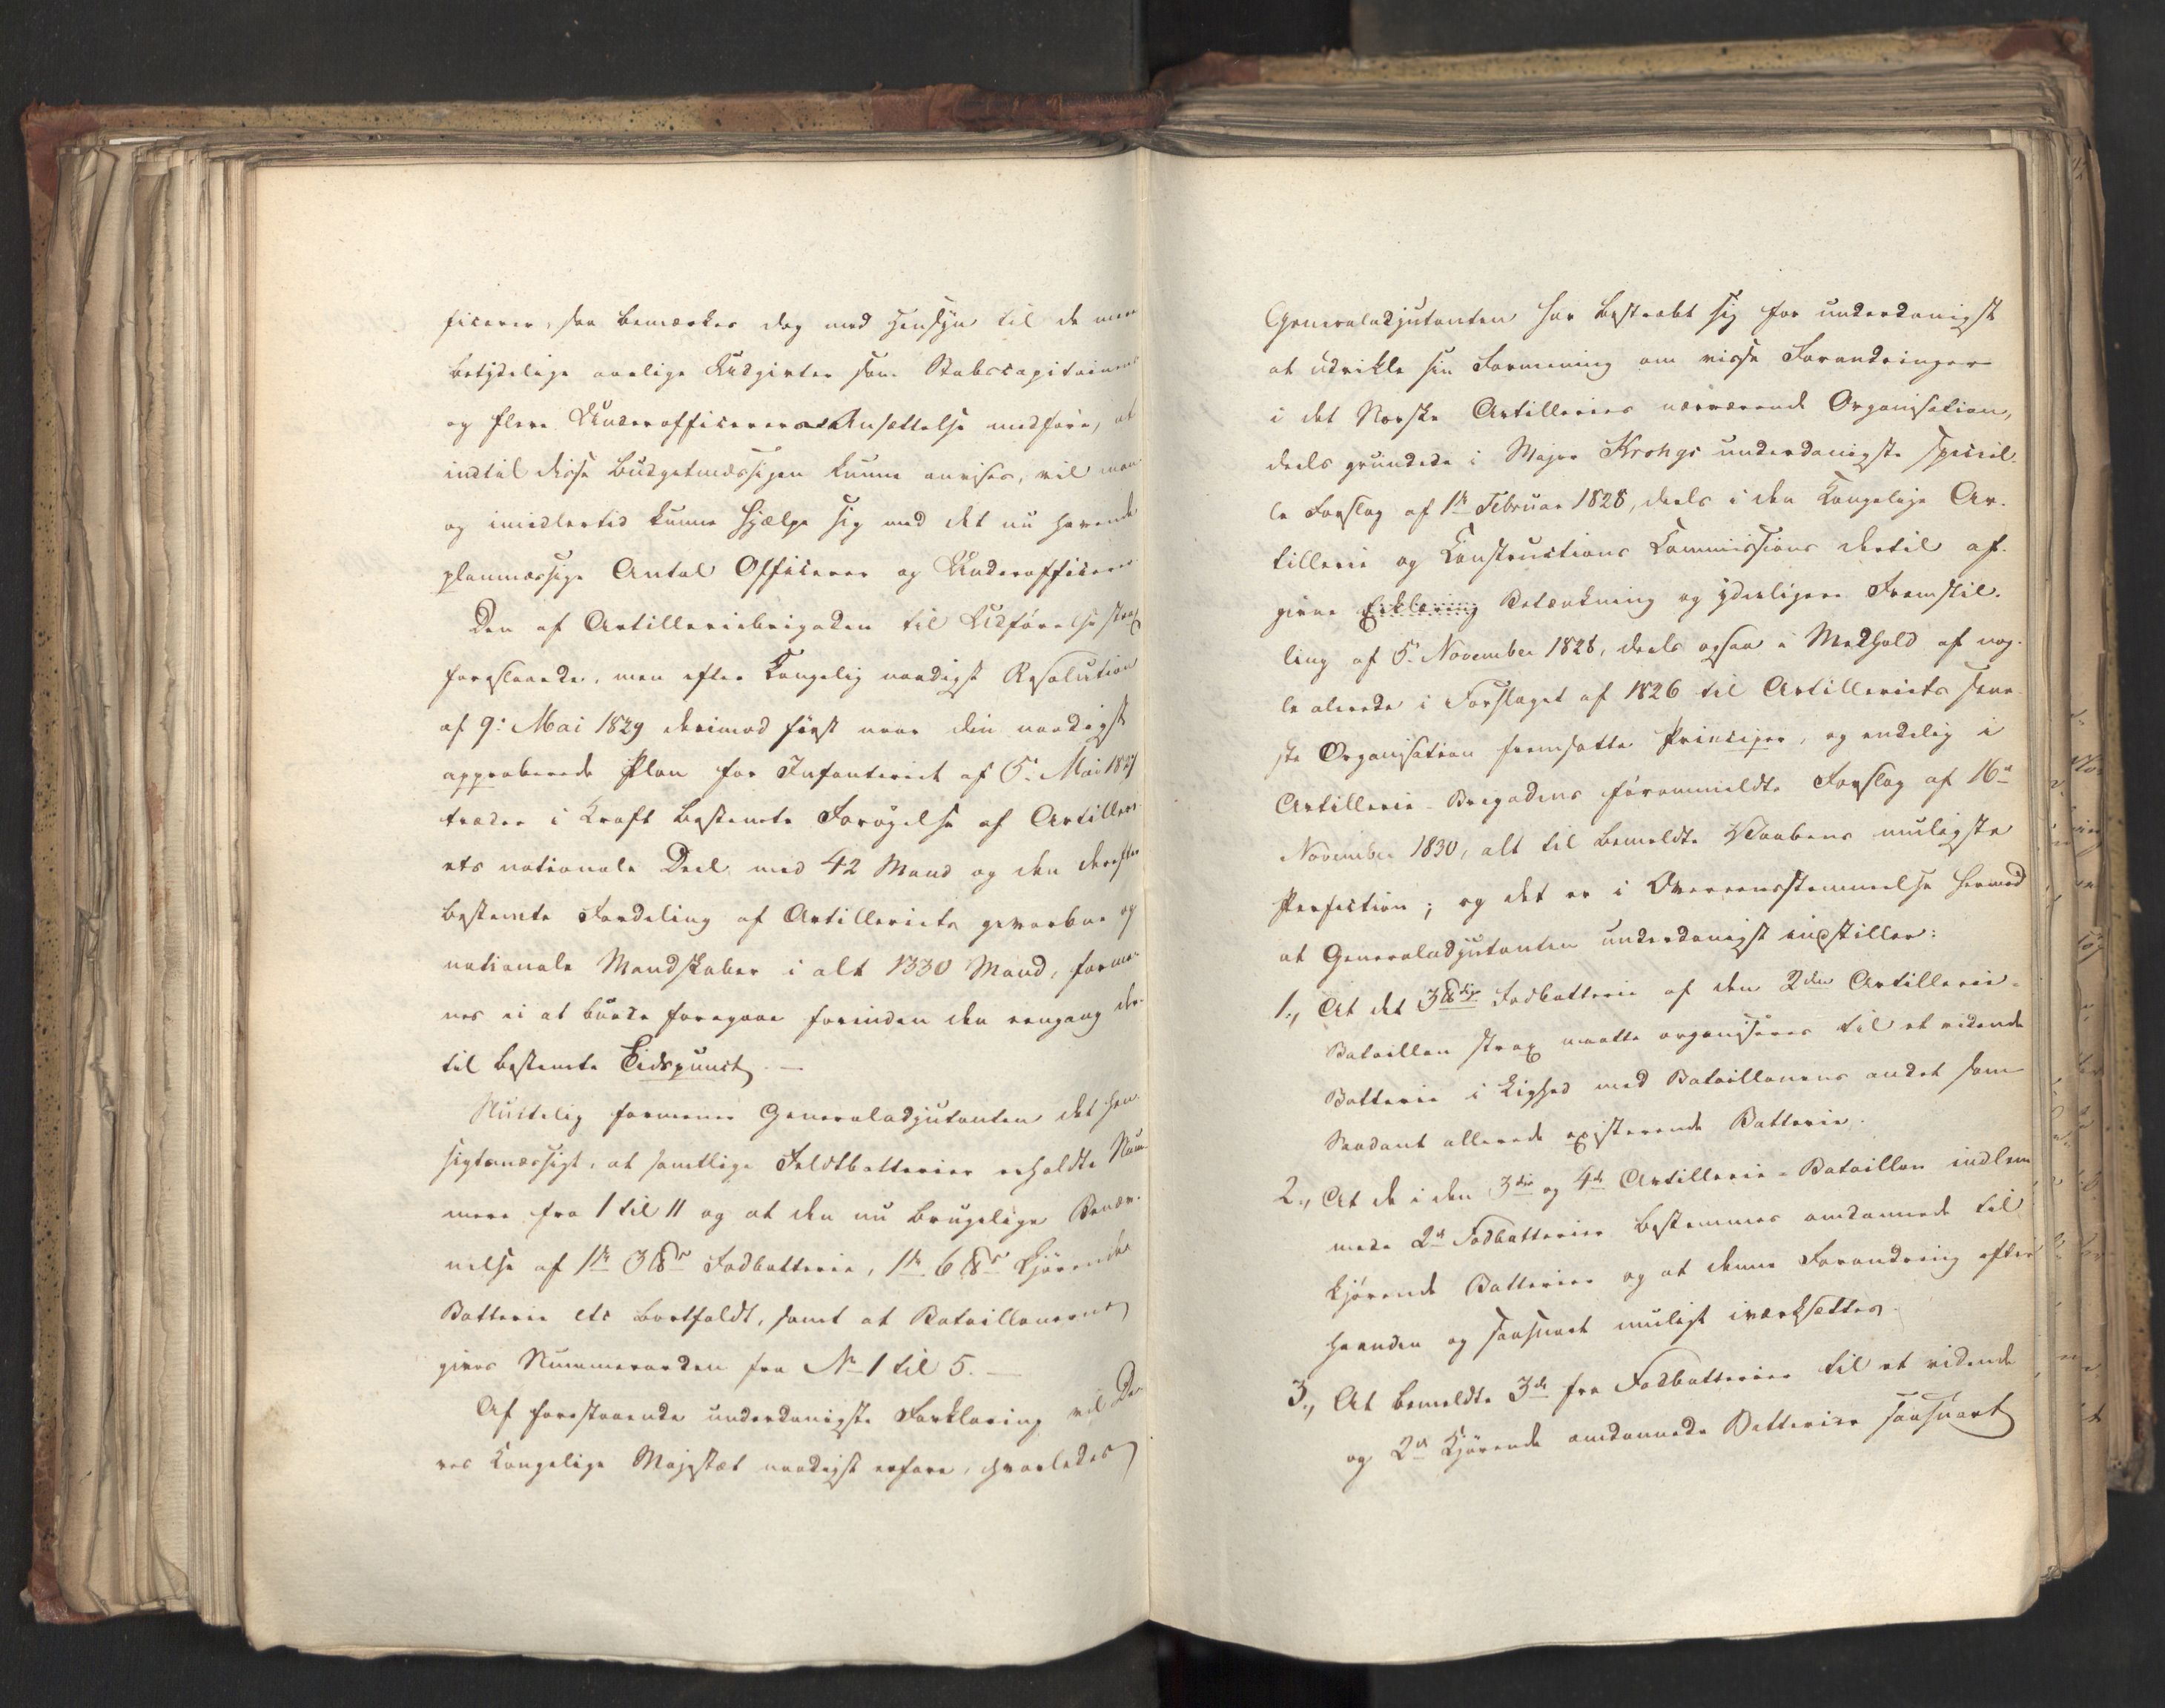 ficerer, saa bemærkes dog med Hensyn til de mere
betydelige aarlige Udgivter som Stabscapitainers
og flere Underofficerers Ansættelse medføre, at
indtil disse Budgetmæssigen kunne anvises, vil man
og imidlertid kunne hjælpe sig med det nu havende
planmæssige Antal Officerer og Underofficerer
Den af Artilleriebrigaden til Udførelse strax
foreslaaede, men efter Kongelig naadigst Resolution
af 9: Mai 1829 derimod først naar din naadigst
approberede Plan for Infanteriet af 5: Mai 1827
træder i Kraft bestemte Forøgelse af Artilleri-
ets nationale Deel med 42 Mand og den derefter
bestemte Fordeling af Artilleriets gevorbne og
nationale Mandskaber i alt 1330 Mand, forme-
nes ei at burde foregaae forinden den eengang der-
til bestemte Tidspunct. —
Sluttelig formener Generaladjutanten det hen-
sigtsmæssigt, at samtlige Feldtbatterier erholdte Num-
mere fra 1 til 11 og at den nu brugelige Benæv-
nelse af 1ste 3 ℔s Fodbatterie, 1ste 6 ℔s kjørende
Batterie etc bortfaldt, samt at Bataillonerne
gives Nummerorden fra No 1 til 5. —
Af forestaaende underdanigste Forklaring vil De-
res Kongelige Majestæt naadigst erfare, hvorledes
Generaladjutanten har bestræbt sig for underdanigst
at udvikle sin Formening om visse Forandringer
i det Norske Artilleries nærværende Organisation,
deels grundede i Major Krohgs underdanigste speciel-
le Forslag af 1ste Februar 1828, deels i den Kongelige Ar-
tillerie og Constructions Commissions dertil af-
givne Erklæring Betænkning og yderligere Fremstil-
ling af 5. November 1828, deels ogsaa i Medhold af nog-
le alerede i Forslaget af 1826 til Artilleriets sene-
ste Organisation fremsatte Principer, og endelig i
Artillerie-Brigadens førommeldte Forslag af 16de
November 1830, alt til bemeldte Vaabens muligste
Perfection; og det er i Overeensstemmelse hermed
at Generaladjutanten underdanigst indstiller:
1., At det 3 ℔dige Fodbatterie af den 2den Artillerie-
Bataillon strax maatte organiseres til et ridende
Batterie i Lighed med Bataillonens andet som
Saadant allerede existerende Batterie.
2., At de i den 3die og 4de Artillerie-Bataillon indlem-
mede 2de Fodbatterier bestemmes omdannede til
kjørende Batterier og at denne Forandring efter-
haanden og saasnart muligt iværksættes.
3., At bemeldte 3de fra Fodbatterier til et ridende
og 2de Kjørende omdannede Batterier saasnart